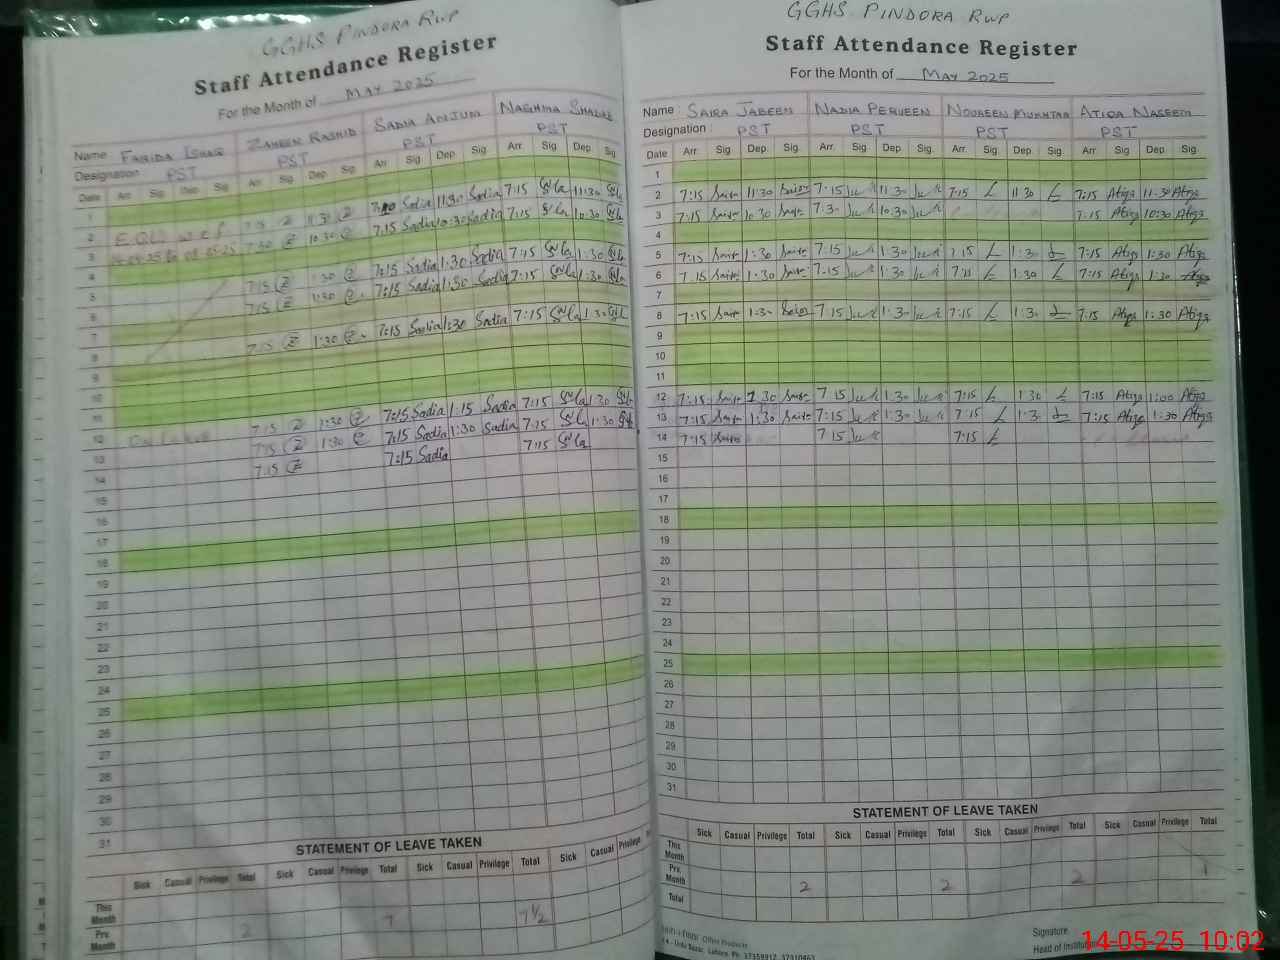 GGHS PINDORA RWP
Staff Attendance Register
For the Month of MAY 2025
Name FARIDA ISHAQ ZAHEEN RASHID SADIA ANJUM NAGHMA SHAHEEN
Designation PST PST PST PST
Date Arr Sig Dep Sig Arr Sig Dep Sig Arr Sig Dep Sig Arr. Sig Dep Sig
1
2 11:30 7:10 Sadia 11:30 Sadia 7:15 11:30
3 7:30 10:30 7:15 Sadia 10:30 Sadia 7:15 10:30
4
5 7:15 1:30 7:15 Sadia 1:30 Sadia 7:15 1:30
6 7:15 1:30 7:15 Sadia 1:30 Sadia 7:15 1:30
7
8 7:15 1:30 7:15 Sadia 1:30 Sadia 7:15 1:30
9
10
11
12 7:15 1:30 7:15 Sadia 1:15 Sadia 7:15 1:30
13 7:15 1:30 7:15 Sadia 1:30 Sadia 7:15 1:30
14 7:15 7:15 Sadia 7:15
15
16
17
18
19
20
21
22
23
24
25
26
27
28
29
30
31
STATEMENT OF LEAVE TAKEN
Sick Casual Privilege Total Sick Casual Privilege Total Sick Casual Privilege Total Sick Casual Privilege
This Month 7 7½
Prv. Month 2
GGHS PINDORA RWP
Staff Attendance Register
For the Month of MAY 2025
Name : SAIRA JABEEN NADIA PERVEEN NOUREEN MUKHTAR ATIQA NASEEM
Designation : PST PST PST PST
Date Arr. Sig. Dep. Sig. Arr. Sig. Dep. Sig. Arr. Sig. Dep. Sig. Arr. Sig. Dep. Sig.
1
2 7:15 Saira 11:30 Saira 7:15 11:30 7:15 11:30 7:15 Atiqa 11:30 Atiqa
3 7:15 Saira 10:30 Saira 7:30 10:30 7:15 Atiqa 10:30 Atiqa
4
5 7:15 Saira 1:30 Saira 7:15 1:30 7:15 1:30 7:15 Atiqa 1:30 Atiqa
6 7:15 Saira 1:30 Saira 7:15 1:30 7:15 1:30 7:15 Atiqa 1:30 Atiqa
7
8 7:15 Saira 1:30 Saira 7:15 1:30 7:15 1:30 7:15 Atiqa 1:30 Atiqa
9
10
11
12 7:15 Saira 1:30 Saira 7:15 1:30 7:15 1:30 7:15 Atiqa 1:00 Atiqa
13 7:15 Saira 1:30 Saira 7:15 1:30 7:15 1:30 7:15 Atiqa 1:30 Atiqa
14 7:15 Saira 7:15 7:15
15
16
17
18
19
20
21
22
23
24
25
26
27
28
29
30
31
STATEMENT OF LEAVE TAKEN
Sick Casual Privilege Total Sick Casual Privilege Total Sick Casual Privilege Total Sick Casual Privilege Total
This Month
Prv. Month 2 2 2 1
Total
Office Products
Urdu Bazar, Lahore. Ph: 37359912, 37310463
Signature
Head of Institution
14-05-25 10:02